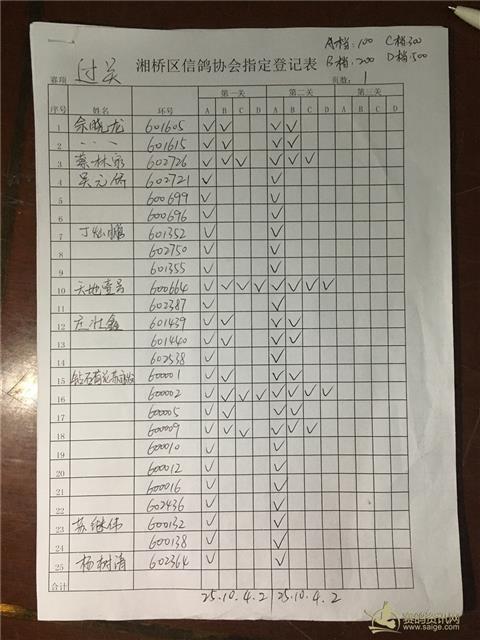 A档:100 C档300
湘桥区信鸽协会指定登记表 B档,200 D档,500
赛项 过关 页数: 1
序号 姓名 环号 第一关 第二关 第三关
A B C D A B C D A B C D
1 余晓龙 601605 ✓ ✓ ✓ ✓
2 、、、 601615 ✓ ✓ ✓ ✓
3 蔡林 602726 ✓ ✓ ✓ ✓ ✓ ✓
4 吴元侨 602721 ✓ ✓
5 600699 ✓ ✓
6 600696 ✓ ✓
7 丁灿 601352 ✓ ✓
8 602750 ✓ ✓
9 601355 ✓ ✓
10 天地壹号 600664 ✓ ✓ ✓ ✓ ✓ ✓ ✓ ✓
11 602387 ✓ ✓
12 庄壮鑫 601439 ✓ ✓ ✓ ✓
13 601440 ✓ ✓ ✓ ✓
14 602538 ✓ ✓
15 钻石 600001 ✓ ✓ ✓ ✓
16 600002 ✓ ✓ ✓ ✓ ✓ ✓ ✓ ✓
17 600005 ✓ ✓ ✓ ✓
18 600009 ✓ ✓ ✓ ✓ ✓ ✓
19 600010 ✓ ✓
20 600012 ✓ ✓
21 600016 ✓ ✓
22 602436 ✓ ✓
23 苏继伟 600132 ✓ ✓
24 600138 ✓ ✓
25 杨树涛 602364 ✓ ✓
合计 25.10.4.2 25.10.4.2
赛鸽资讯网
www.saige.com